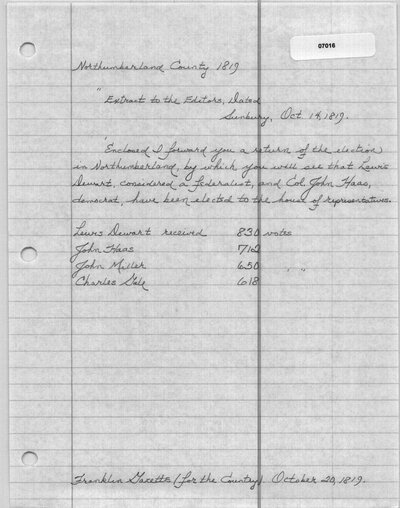 07016
Northumberland County 1819
"Extract to the Editors, Dated
Sunbury, Oct. 14, 1819.
"Enclosed I forward you a return of the election
in Northumberland, by which you will see that Lewis
Dewart, considered a Federalist, and Col. John Haas,
democrat, have been elected to the house of representatives.
Lewis Dewart received 830 votes
John Haas 712
John Miller 650 " "
Charles Gale 618
Franklin Gazette (for the Country) October 20, 1819.